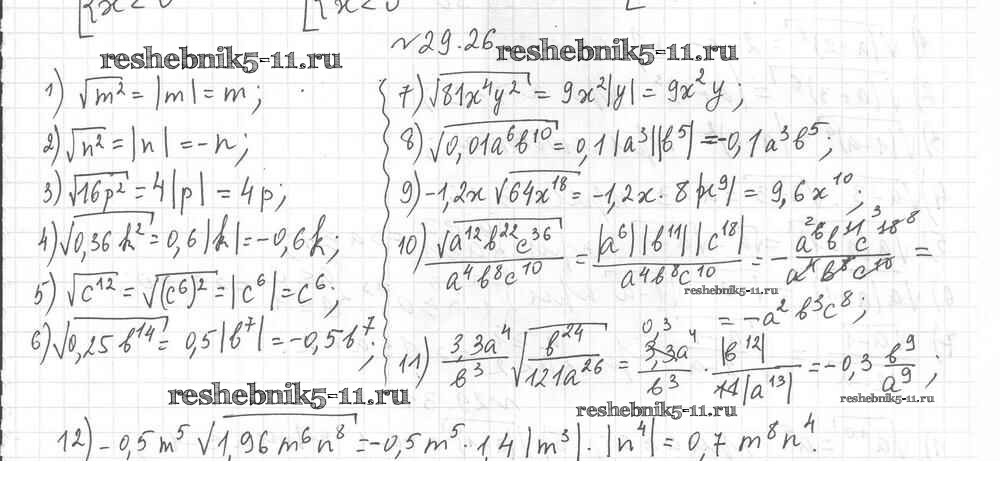 №29.26
reshebnik5-11.ru
reshebnik5-11.ru
1) √m² = |m| = m;
2) √n² = |n| = -n;
3) √16p² = 4|p| = 4p;
4) √0,36k² = 0,6|k| = -0,6k;
5) √c¹² = √(c⁶)² = |c⁶| = c⁶;
6) √0,25b¹⁴ = 0,5|b⁷| = -0,5b⁷;
7) √81x⁴y² = 9x²|y| = 9x²y;
8) √0,01a⁶b¹⁰ = 0,1|a³||b⁵| = -0,1a³b⁵;
9) -1,2x√64x¹⁸ = -1,2x · 8|x⁹| = 9,6x¹⁰;
10) √a¹²b²²c³⁶ / a⁴b⁸c¹⁰ = |a⁶||b¹¹||c¹⁸| / a⁴b⁸c¹⁰ = - a⁶b¹¹c¹⁸ / a⁴b⁸c¹⁰ =
reshebnik5-11.ru
= -a²b³c⁸;
11) 3,3a⁴/b³ √b²⁴/121a²⁶ = 3,3a⁴/b³ · |b¹²|/11|a¹³| = -0,3 b⁹/a⁹;
reshebnik5-11.ru
reshebnik5-11.ru
reshebnik5-11.ru
12) -0,5m⁵√1,96m⁶n⁸ = -0,5m⁵ · 1,4|m³| · |n⁴| = 0,7m⁸n⁴.